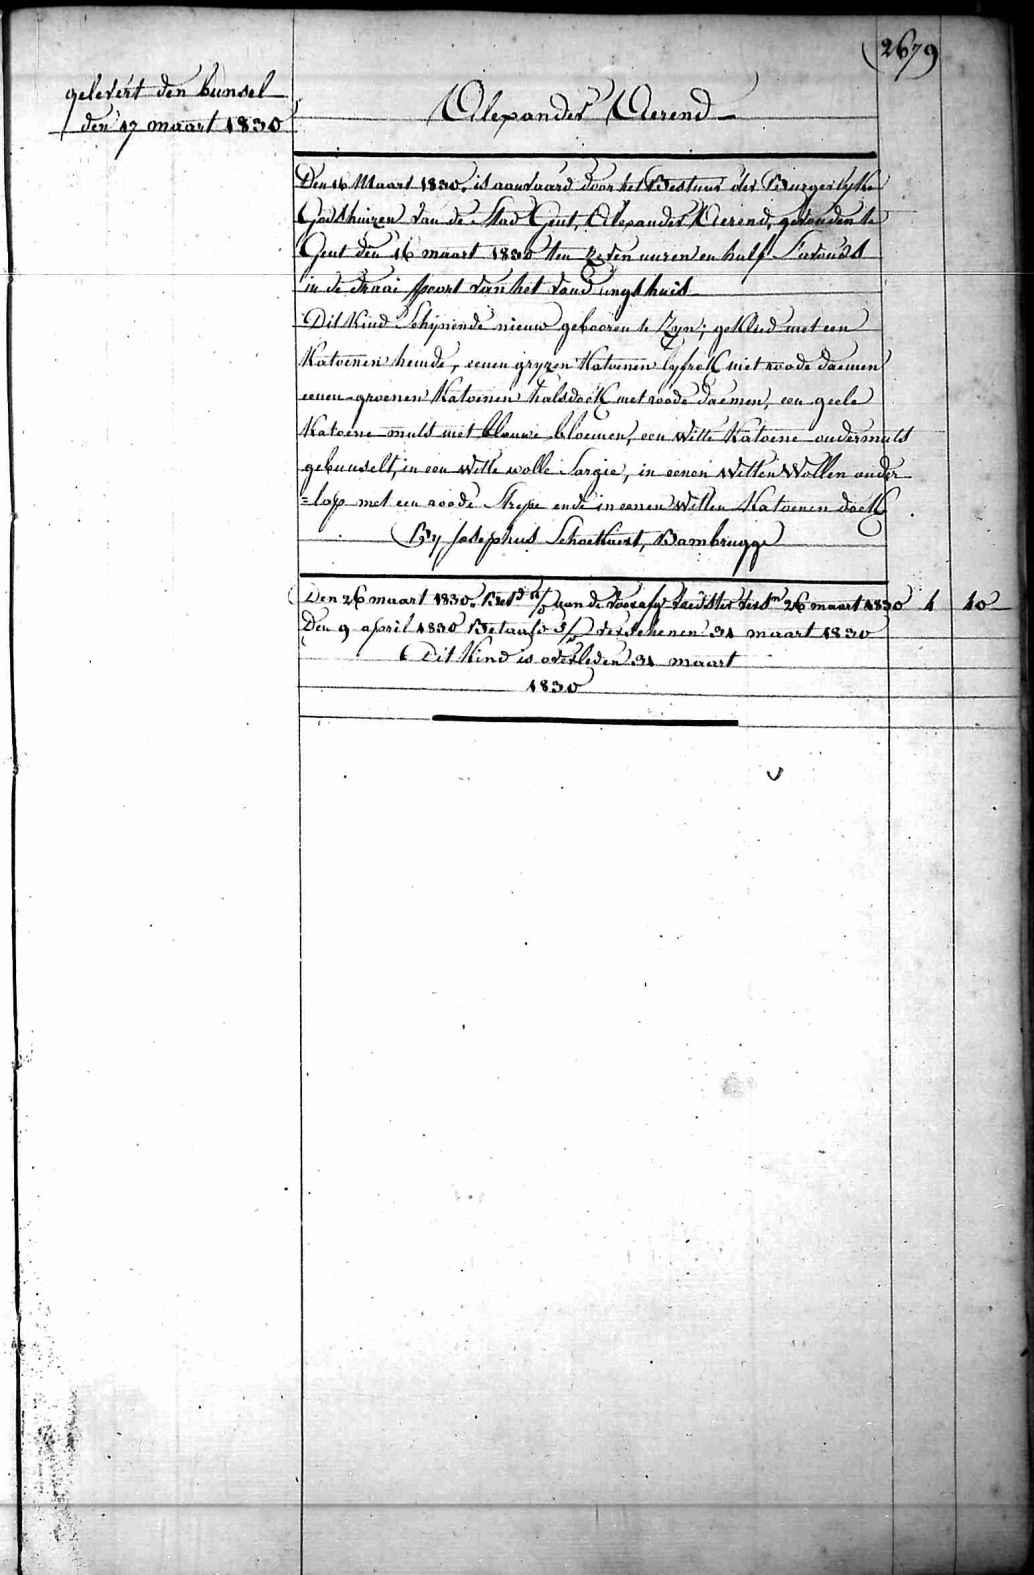 2679
gelevert den bunsel
den 17 maart 1830
Alexander Aerend
Den 16 Maart 1830. is aanvaard door het Bestuur der Burgerlyke
Godshuizen van de Stad Gent, Alexander Aerend, gevonden te
Gent den 16 maart 1830 ten zeven uuren en half S'avonds
in de draai spoort van het vond lingshuis
Dit Kind Schynende nieuw gebooren te Zyn; gekleed met een
Katoenen hemde, eenen gryzen Katoenen lyfrok met roode daemen
eenen groenen Katoenen halsdoek met roode daemen, een geele
Katoene muts met blauwe bloemen, een witte Katoene ondermuts
gebunselt, in een witte wolle Sargie, in eenen Witten Wollen onder
=lap met een roode Strepe ende in eenen Witten Katoenen doek
By Josephus Schoethaert, Bambrugge
Den 26 maart 1830. Bet^d aan de voorafg 26 maart 1830 1 40
Den 9 april 1830 Betaald verschenen 31 maart 1830
Dit Kind is overleden 31 maart
1830